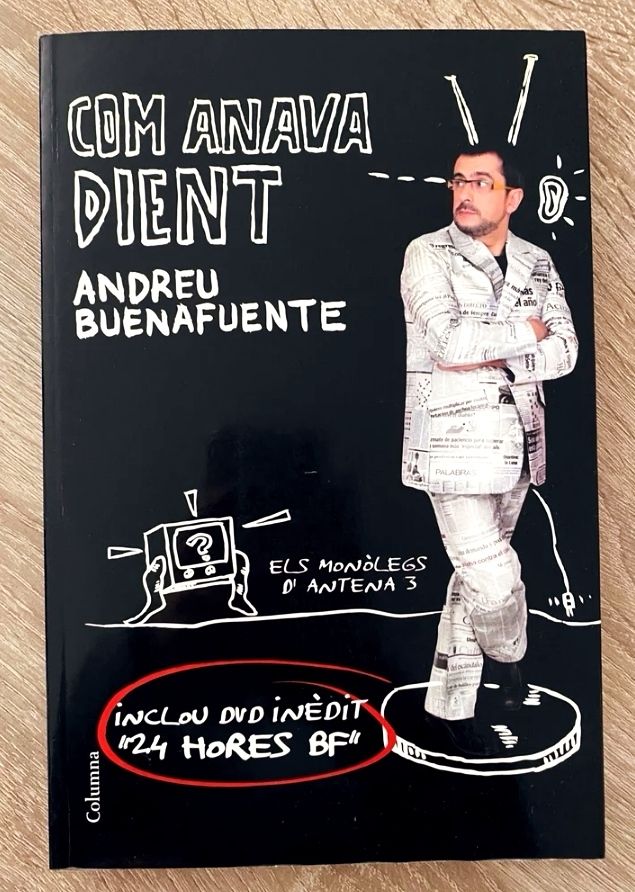 COM ANAVA
DIENT
ANDREU
BUENAFUENTE
ELS MONÒLEGS
D'ANTENA 3
INCLOU DVD INÈDIT
"24 HORES BF"
Columna
?
PALABRAS